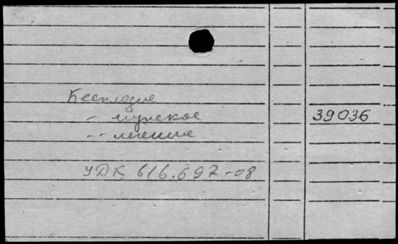 Бесплодие
- мужское
-- лечение
39036
УДК 616.697-08